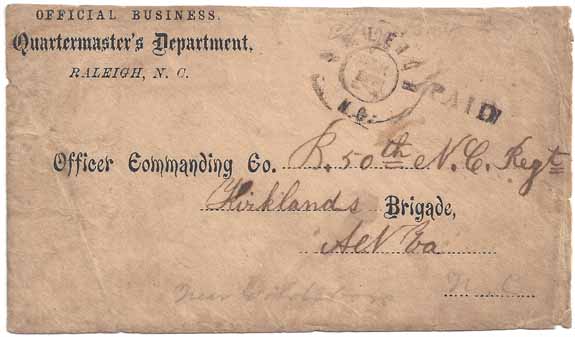 OFFICIAL BUSINESS.
Quartermaster's Department,
RALEIGH, N. C.
RALEIGH
N.C.
PAID
Officer Commanding Co. K. 50th N.C. Regt
Kirklands Brigade,
ANVa
near Goldsboro
N. C.